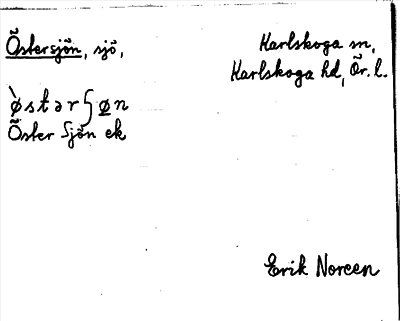 Östersjön, sjö,
Karlskoga sn,
Karlskoga hd, Ör. l.
ø̀stərʃøn
Öster Sjön ek
Erik Noreen